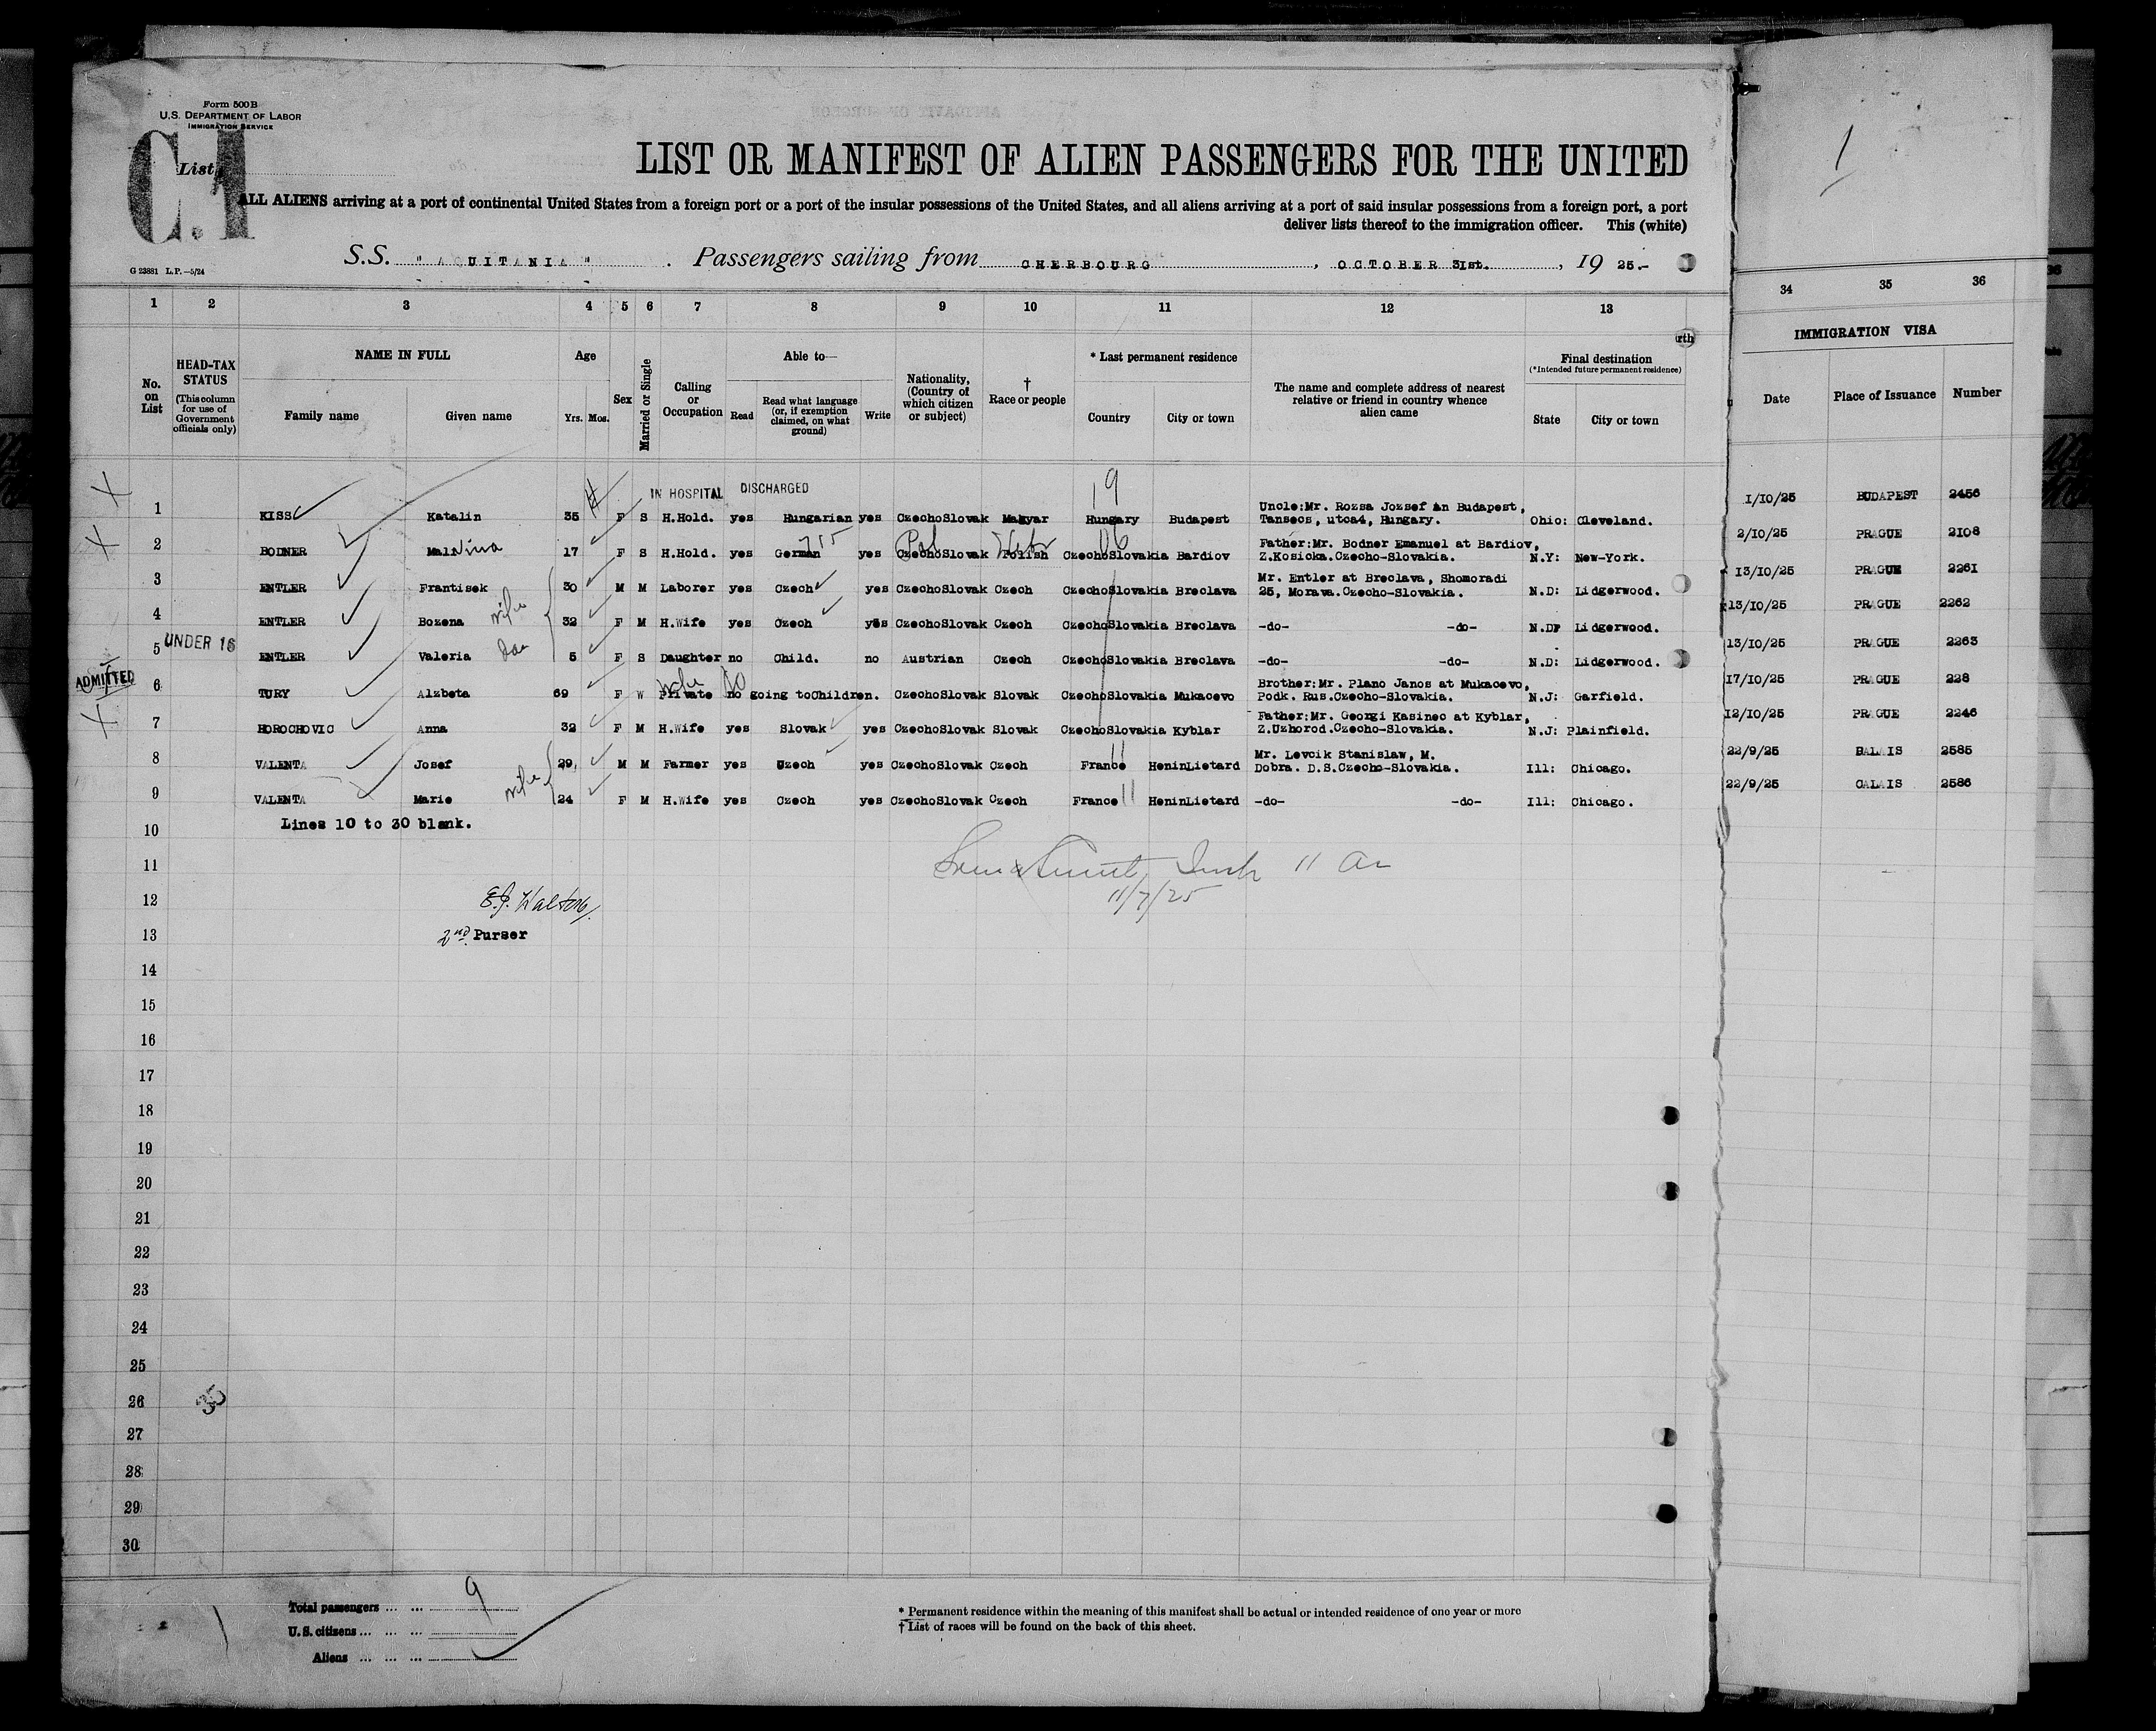 Form 500 B
U.S. DEPARTMENT OF LABOR
IMMIGRATION SERVICE
C.1
List
LIST OR MANIFEST OF ALIEN PASSENGERS FOR THE UNITED
ALL ALIENS arriving at a port of continental United States from a foreign port or a port of the insular possessions of the United States, and all aliens arriving at a port of said insular possessions from a foreign port, a port
deliver lists thereof to the immigration officer. This (white)
S.S. "AQUITANIA". Passengers sailing from CHERBOURG, OCTOBER 31st., 19 25.-
G 23881 L.P.—5/24
1
1 2 3 4 5 6 7 8 9 10 11 12 13 34 35 36
No. on List
HEAD-TAX STATUS (This column for use of Government officials only)
NAME IN FULL
Family name Given name
Age
Yrs. Mos.
Sex
Married or Single
Calling or Occupation
Able to—
Read
Read what language (or, if exemption claimed, on what ground)
Write
Nationality, (Country of which citizen or subject)
† Race or people
* Last permanent residence
Country City or town
The name and complete address of nearest relative or friend in country whence alien came
Final destination
(*Intended future permanent residence)
State City or town
rth
IMMIGRATION VISA
Date Place of Issuance Number
IN HOSPITAL DISCHARGED
19
1 KISS Katalin 35 F S H.Hold. yes Hungarian yes CzechoSlovak Magyar Hungary Budapest Uncle:Mr. Rozsa Jozsef in Budapest, Tansecs, utca4, Hungary. Ohio: Cleveland. 1/10/25 BUDAPEST 2456
2 BODNER Malvina 17 F S H.Hold. yes German yes CzechoSlovak Polish CzechoSlovakia Bardiov Father:Mr. Bodner Emanuel at Bardiov, Z.Kosicka.Czecho-Slovakia. N.Y: New-York. 2/10/25 PRAGUE 2108
3 ENTLER Frantisek 30 M M Laborer yes Czech yes CzechoSlovak Czech CzechoSlovakia Breclava Mr. Entler at Breclava, Shomoradi 25, Morava.Czecho-Slovakia. N.D: Lidgerwood. 13/10/25 PRAGUE 2261
4 ENTLER Bozena wife 32 F M H.Wife yes Czech yes CzechoSlovak Czech CzechoSlovakia Breclava -do- -do- N.D: Lidgerwood. 13/10/25 PRAGUE 2262
5 UNDER 16 ENTLER Valeria dau 5 F S Daughter no Child. no Austrian Czech CzechoSlovakia Breclava -do- -do- N.D: Lidgerwood. 13/10/25 PRAGUE 2263
ADMITTED
6 TURY Alzbeta 69 F W Private no going toChildren. CzechoSlovak Slovak CzechoSlovakia Mukacevo Brother:Mr. Plano Janos at Mukacevo, Podk. Rus.Czecho-Slovakia. N.J: Garfield. 17/10/25 PRAGUE 228
7 HOROCHOVIC Anna 32 F M H.Wife yes Slovak yes CzechoSlovak Slovak CzechoSlovakia Kyblar Father:Mr. Georgi Kasinec at Kyblar, Z.Uzhorod.Czecho-Slovakia. N.J: Plainfield. 12/10/25 PRAGUE 2246
8 VALENTA Josef 29 M M Farmer yes Czech yes CzechoSlovak Czech France HeninLietard Mr. Levcik Stanislaw, M. Dobra. D.S.Czecho-Slovakia. Ill: Chicago. 22/9/25 BALAIS 2585
9 VALENTA Marie wife 24 F M H.Wife yes Czech yes CzechoSlovak Czech France 11 HeninLietard -do- -do- Ill: Chicago. 22/9/25 CALAIS 2586
Lines 10 to 30 blank.
10
11
11/7/25
12
E.J. Walton
13
2nd. Purser
14
15
16
17
18
19
20
21
22
23
24
25
26
27
28
29
30
Total passengers ... ... 9
U.S. citizens ... ... ...
Aliens ... ... ...
* Permanent residence within the meaning of this manifest shall be actual or intended residence of one year or more
† List of races will be found on the back of this sheet.